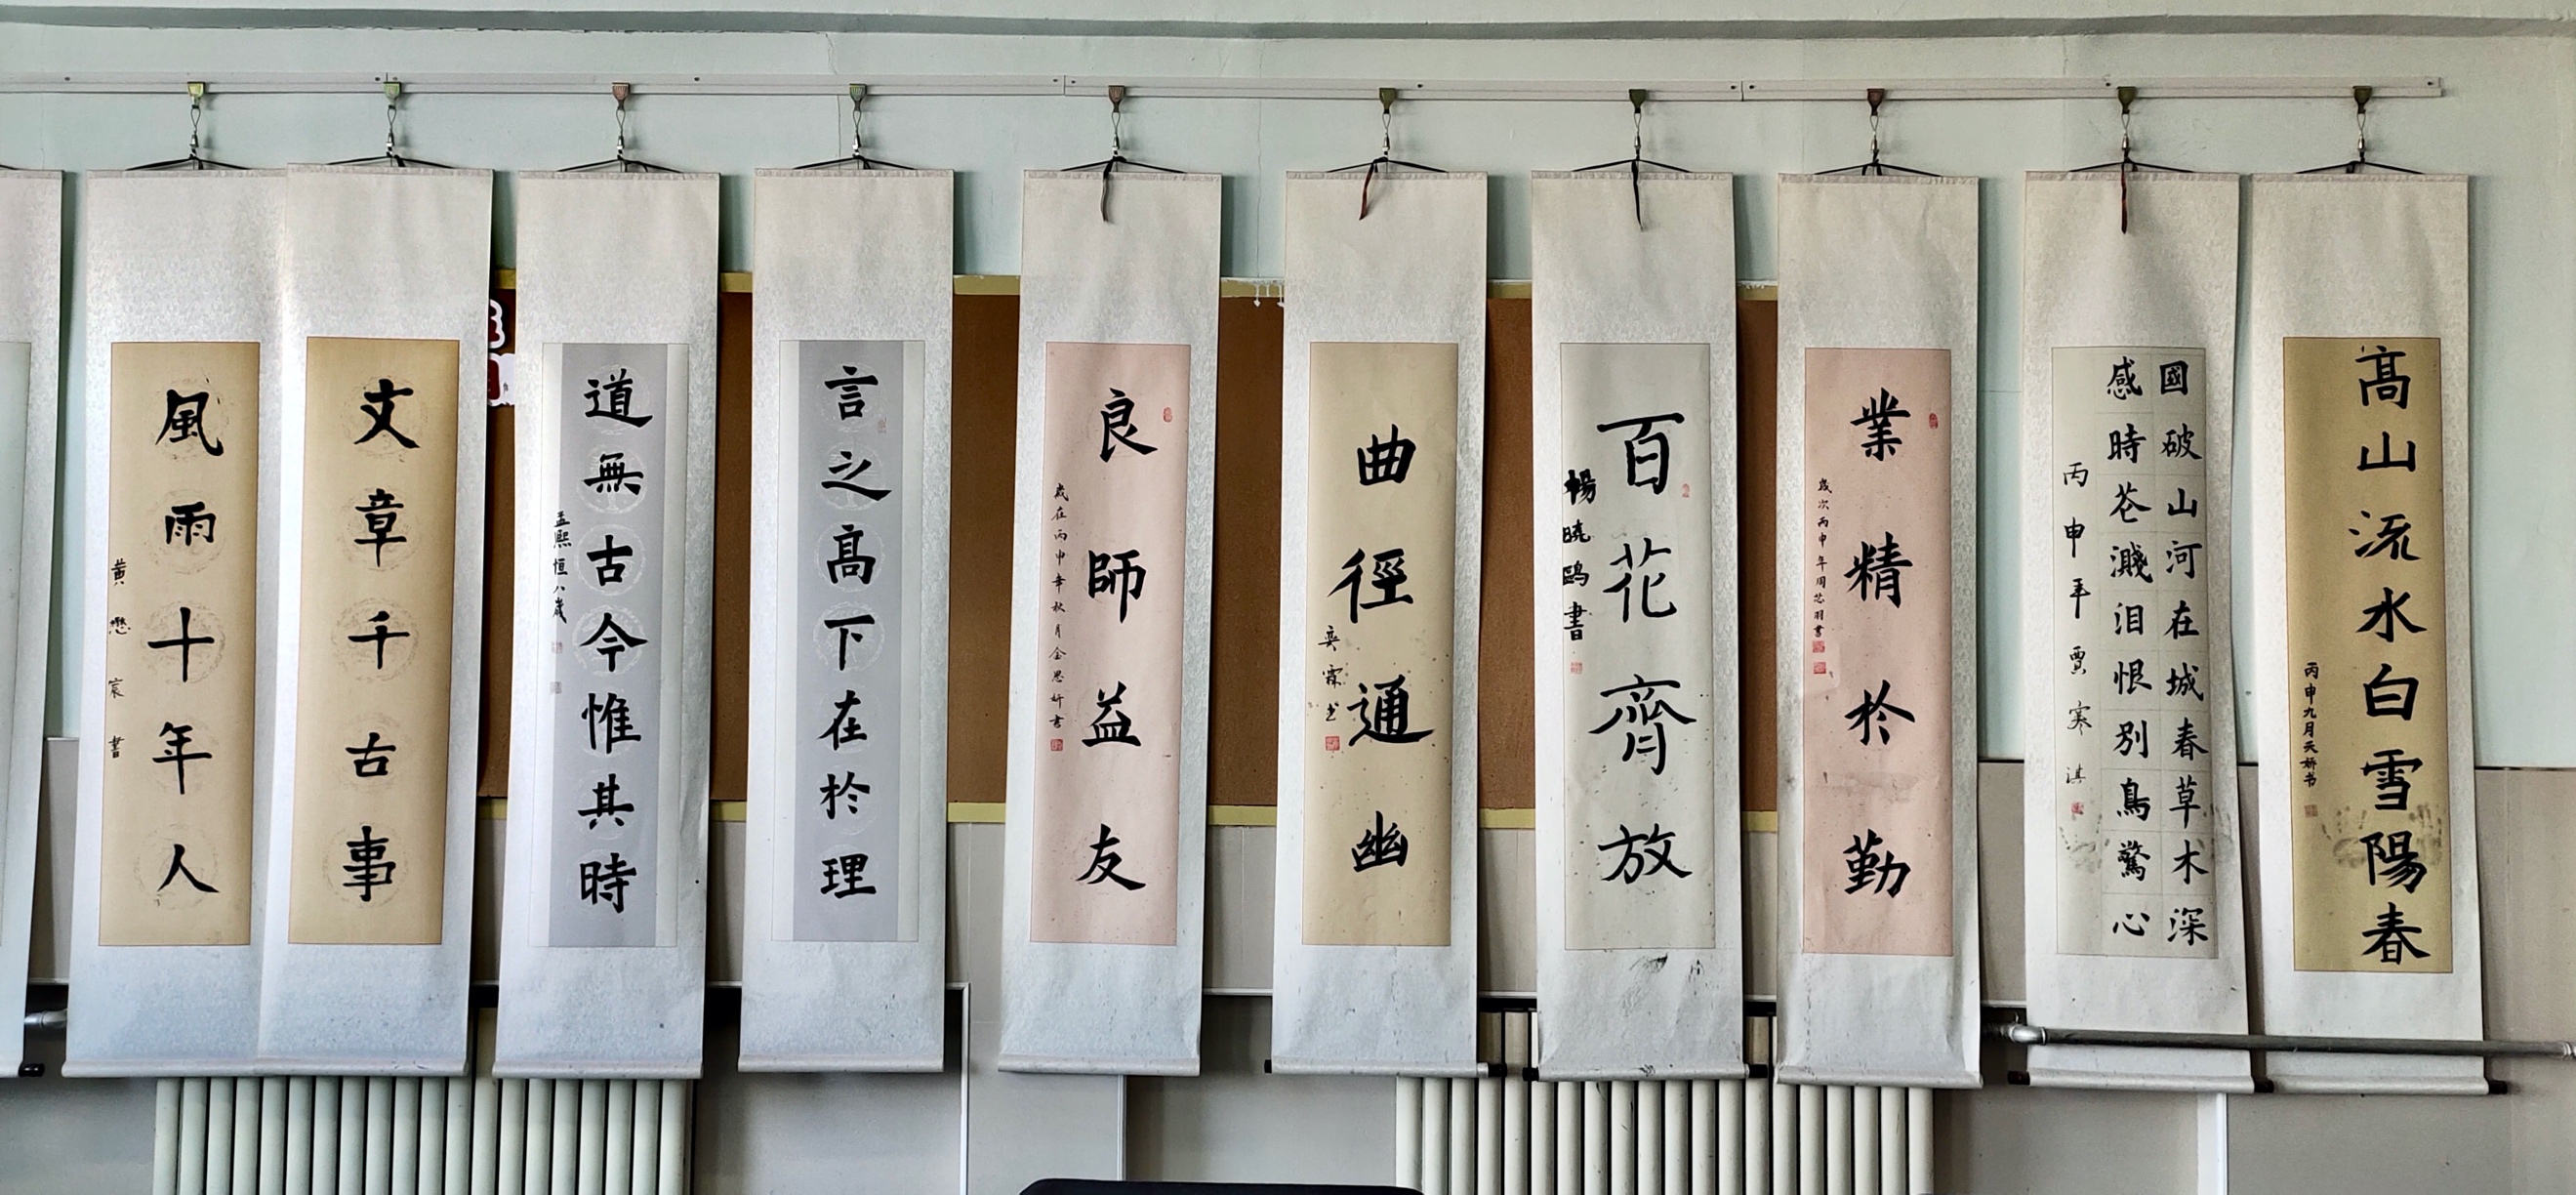 高山流水白雪陽春
丙申九月天妍书
國破山河在城春草木深
感時花濺泪恨別鳥驚心
丙申年賈寒淇
業精於勤
歲次丙申年周芯羽書
百花齊放
楊曉鷗書
曲徑通幽
奕霖书
良師益友
歲在丙申年秋月金思妍書
言之高下在於理
道無古今惟其時
孟熙恒八歲
文章千古事
風雨十年人
黄懋宸書